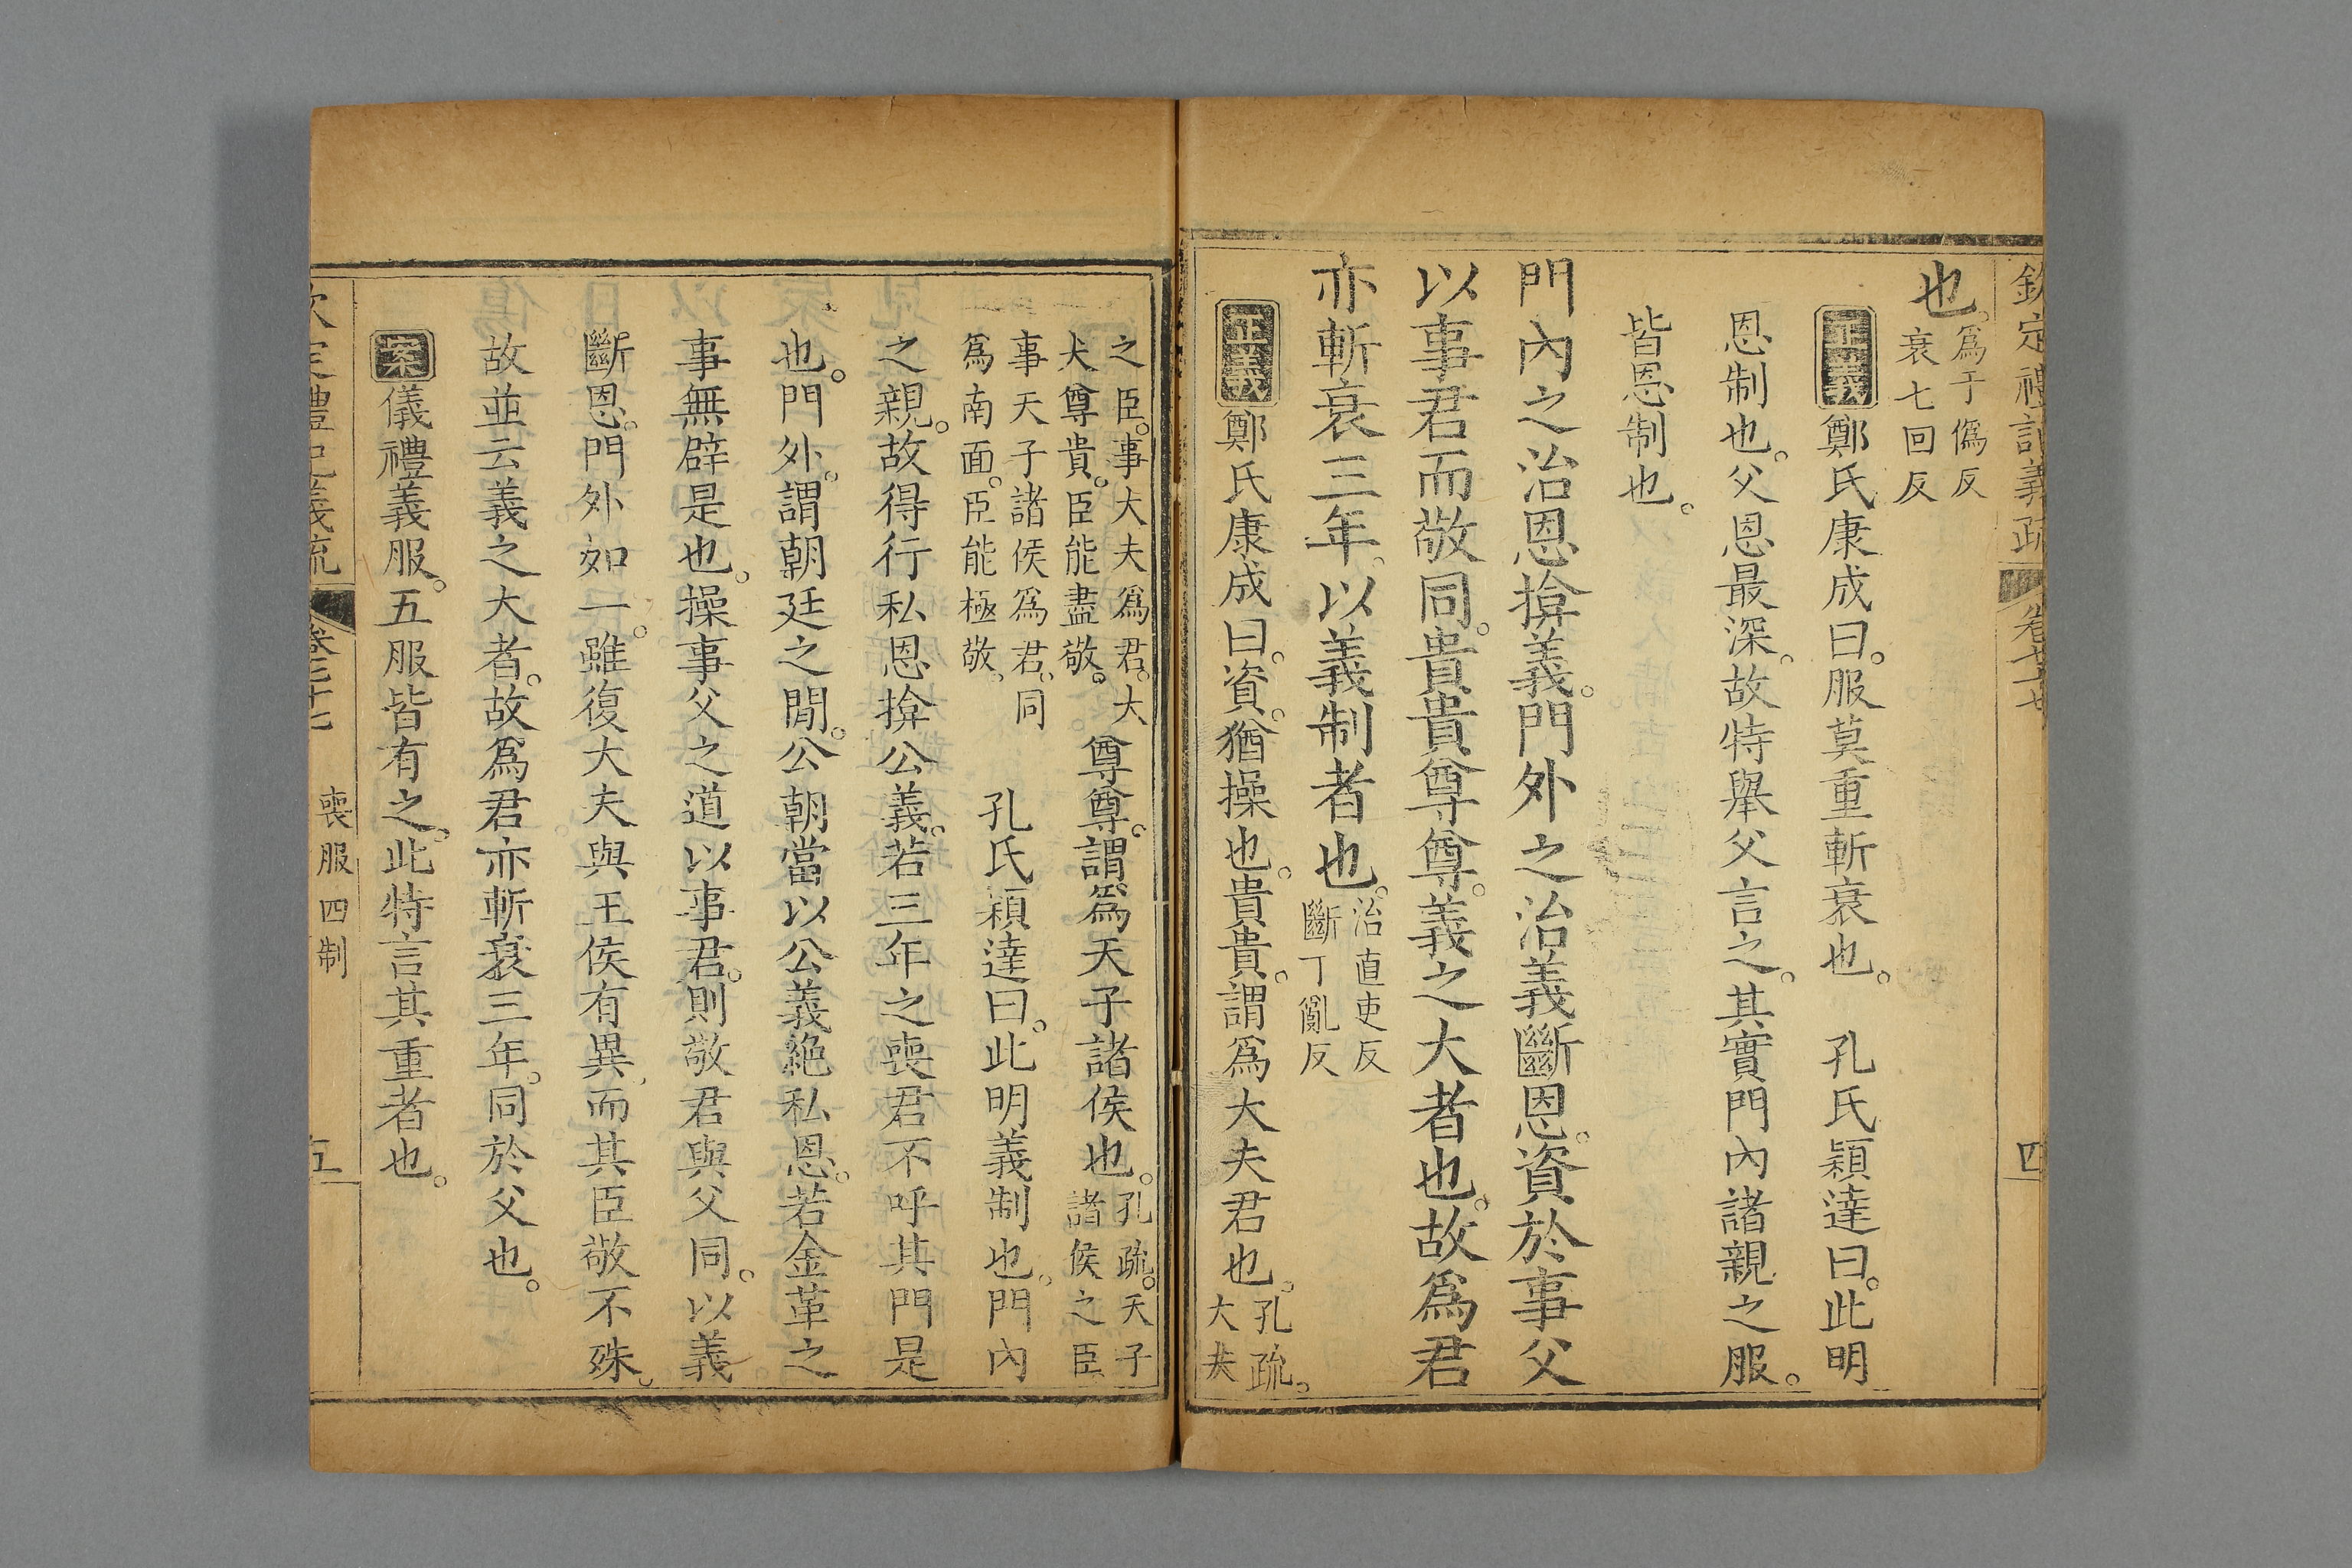 欽定禮記義疏 卷七十七 四
也。爲于僞反 衰七回反
正義 鄭氏康成曰。服莫重斬衰也。 孔氏穎達曰。此明
恩制也。父恩最深。故特舉父言之。其實門內諸親之服。
皆恩制也。
門內之治恩揜義。門外之治義斷恩。資於事父
以事君而敬同。貴貴尊尊。義之大者也。故爲君
亦斬衰三年。以義制者也。治直吏反 斷丁亂反
正義 鄭氏康成曰。資。猶操也。貴貴。謂爲大夫君也。孔疏。大夫
之臣。事大夫爲君。大夫尊貴。臣能盡敬。尊尊。謂爲天子諸侯也。孔疏。天子諸侯之臣
事天子諸侯爲君。同爲南面。臣能極敬。 孔氏穎達曰。此明義制也。門內
之親。故得行私恩揜公義。若三年之喪君不呼其門是
也。門外。謂朝廷之間。公朝當以公義絕私恩。若金革之
事無辟是也。操事父之道以事君。則敬君與父同。以義
斷恩。門外如一。雖復大夫與王侯有異。而其臣敬不殊。
故並云義之大者。故爲君亦斬衰三年。同於父也。
案 儀禮義服。五服皆有之。此特言其重者也。
欽定禮記義疏 卷七十七 喪服四制 五